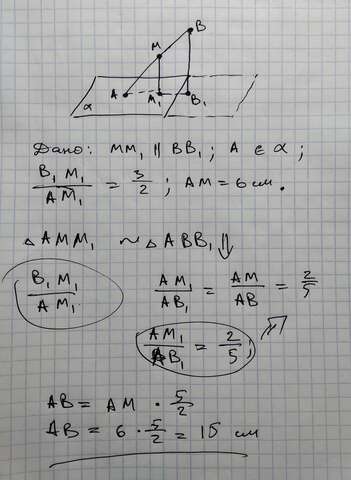 B
M
A
M₁
B₁
α
Дано: MM₁ || BB₁; A ∈ α;
B₁M₁/AM₁ = 3/2; AM = 6 см.
△AMM₁ ~ △ABB₁ ⇓
B₁M₁/AM₁ AM₁/AB₁ = AM/AB = 2/5
AM₁/AB₁ = 2/5;
AB = AM · 5/2
AB = 6 · 5/2 = 15 см